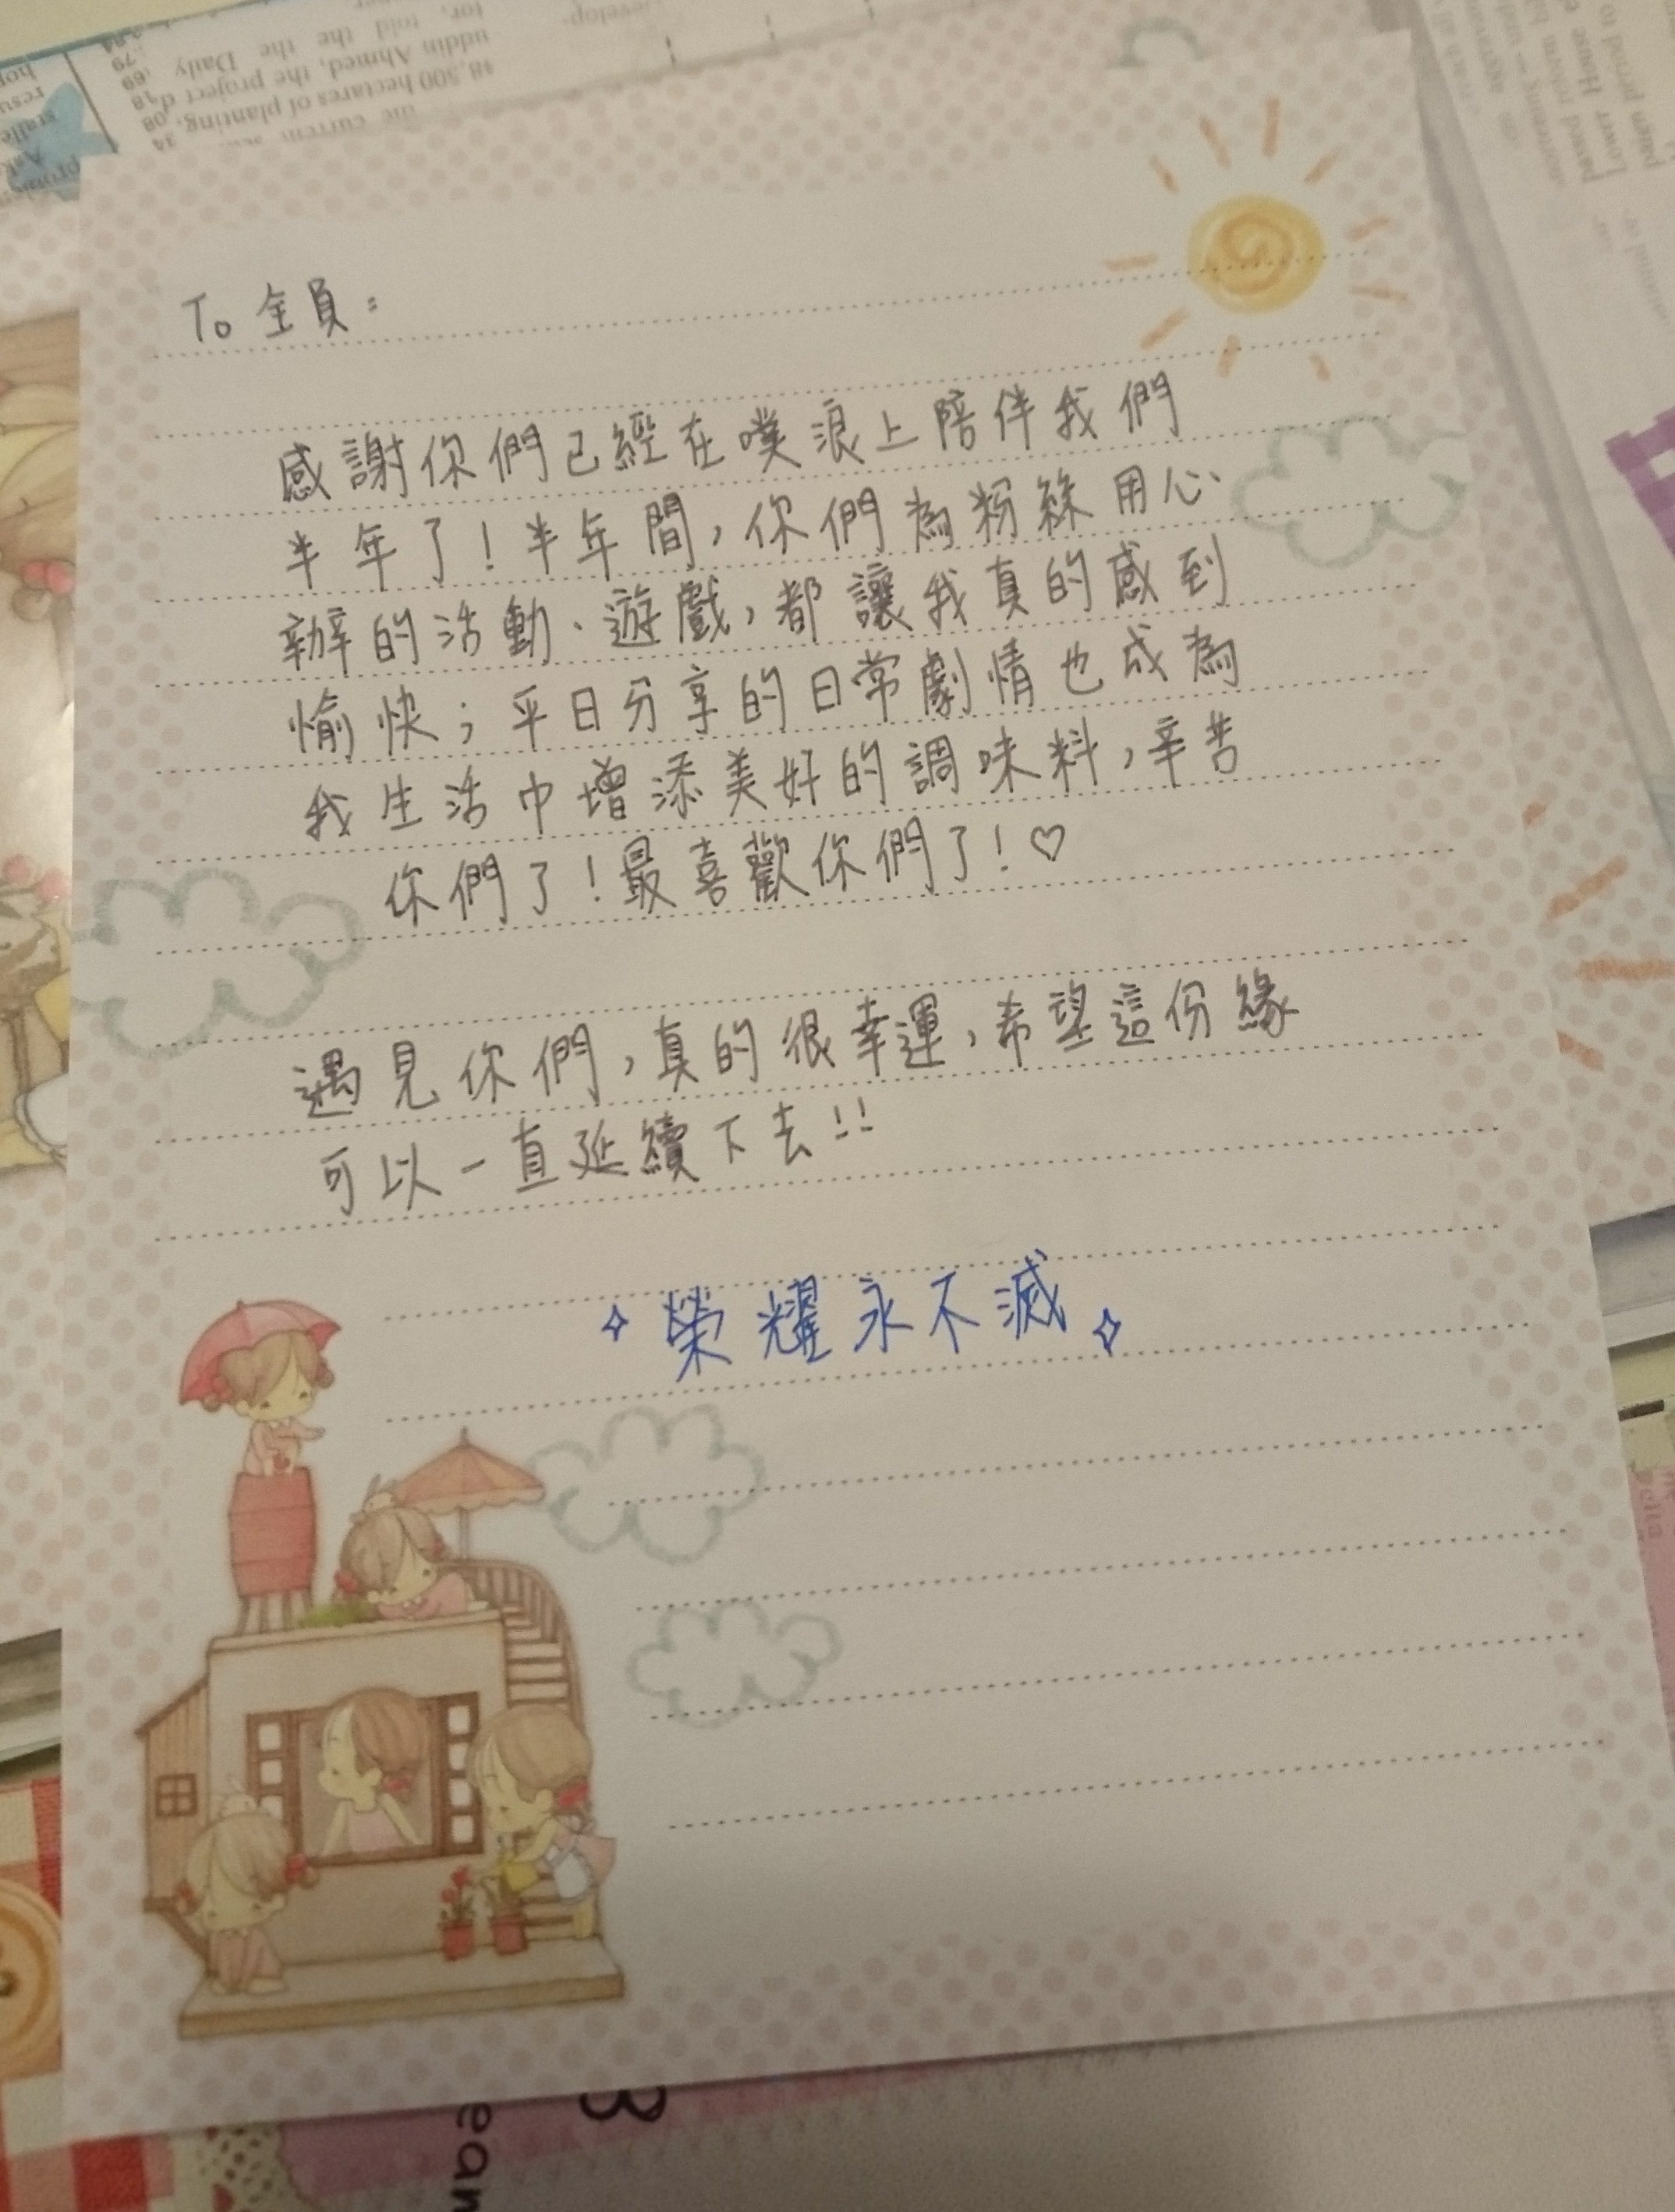 To 全員:
感謝你們已經在噗浪上陪伴我們
半年了!半年間,你們為粉絲用心
辦的活動、遊戲,都讓我真的感到
愉快;平日分享的日常劇情也成為
我生活中增添美好的調味料,辛苦
你們了!最喜歡你們了!♡
遇見你們,真的很幸運,希望這份緣
可以一直延續下去!!
榮耀永不滅
the current
48,500 hectares of planting,
uddin Ahmed, the project d
tor, told the Daily